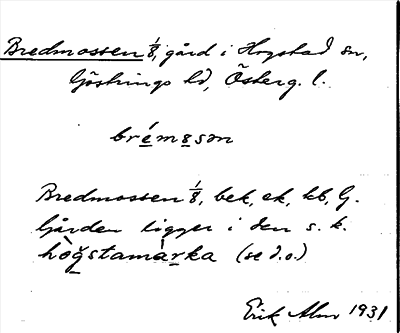 Bredmossen 1/8, gård i Hogstad sn,
Göstrings hd, Österg. l.
brémøsøn
Bredmossen 1/8, bek, ek, kb, G.
Gården ligger i den s. k.
hògstamàrka (se d.o.)
Erik Alm 1931